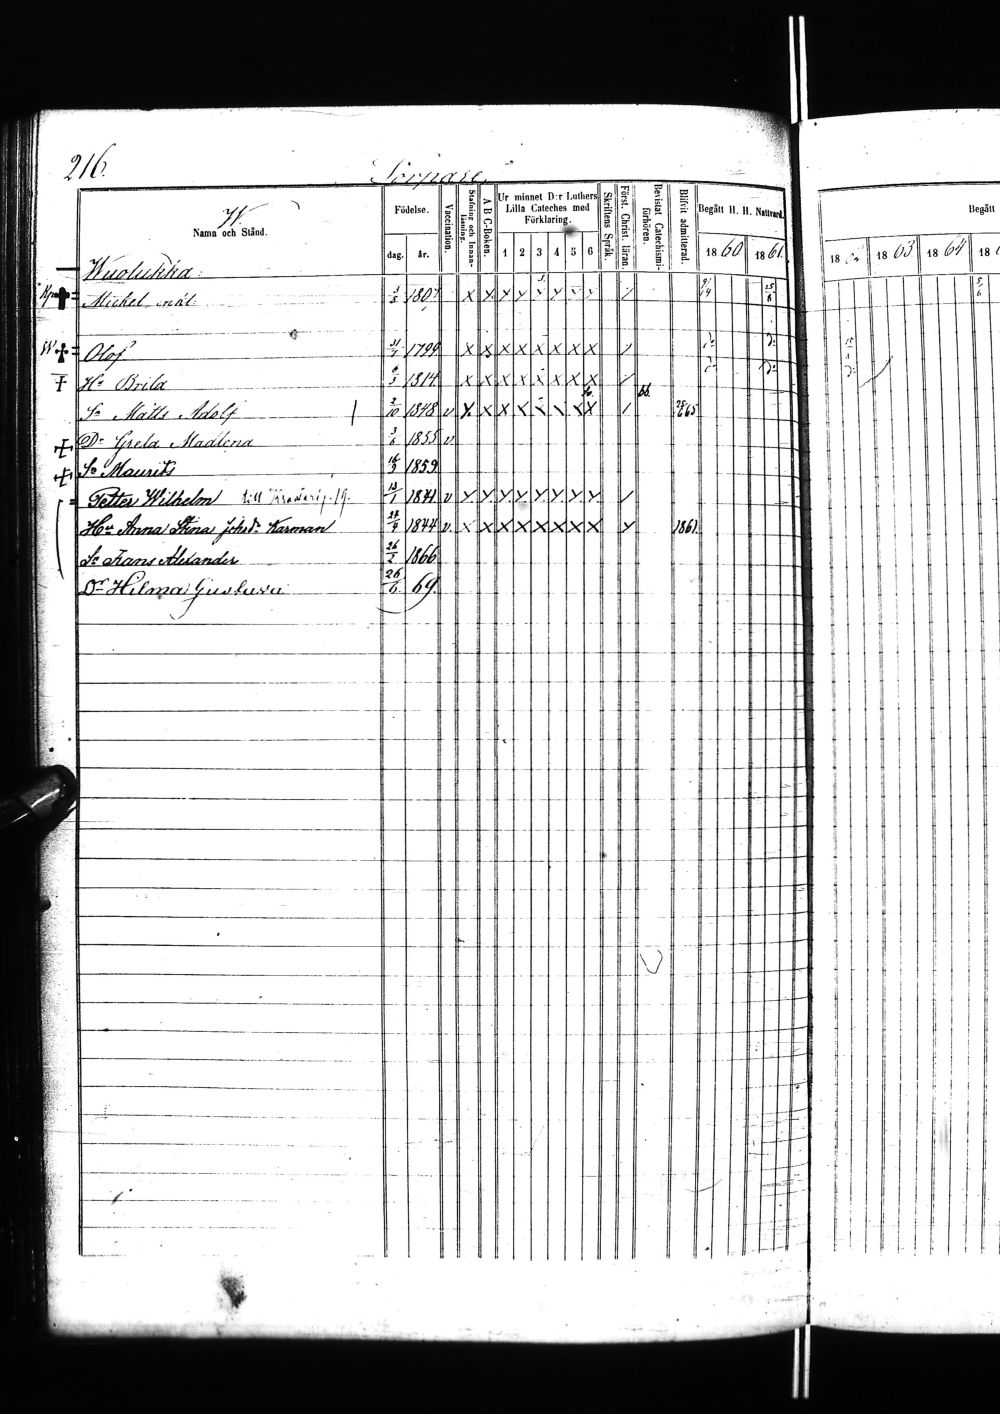 216.
Sorpare.
W.
Namn och Stånd.
Födelse.
dag. år.
Vaccination.
Stafning och Innanläsning.
A B C-Boken.
Ur minnet D:r Luthers Lilla Cateches med Förklaring.
1 2 3 4 5 6
Skriftens Språk.
Först. Christ. läran.
Bevistat Catechismiförhören.
Blifvit admitterad.
Begått H. H. Nattvard.
1860 1861
Begått
18 1863 1864 18
Wuolukka
Michel 1807 X X X X X
Olof 31/7 1799 X X X X X X X X /
Hu Brita 1814 X X X X X X X X /
Sn Matts Adolf 2/10 1848 v X X X X X / 65
Dr Greta Madlena 3/6 1855 v
Sn Maurits 16/9 1859
Petter Wilhelm till 19. 13/1 1841 v X X X X X X X X /
Hu Anna Stina Johsdr Karman 24/9 1844 v. X X X X X X X X 1861
Sn Frans Alexander 26/2 1866
Dr Hilma Gustava 26/6 69.